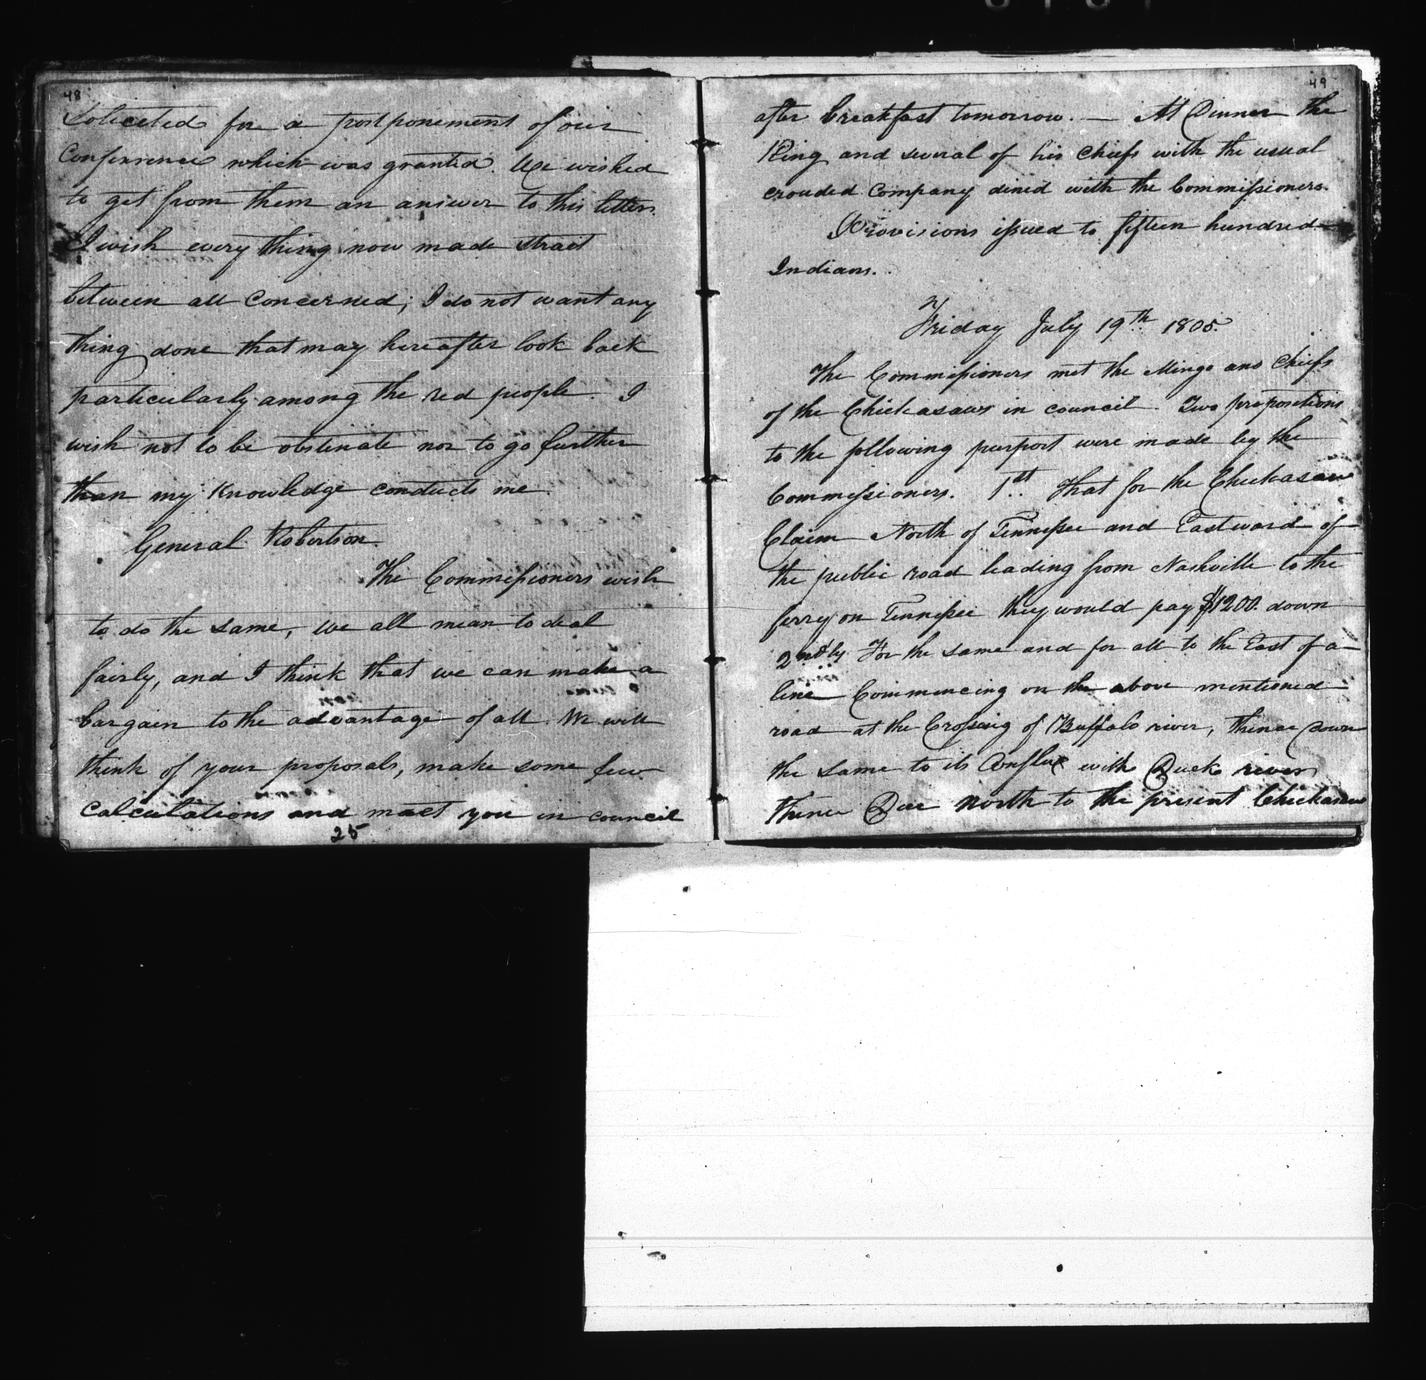 48
Soliceted for a postponement of our
Conferrence which was granted. We wished
to get from them an answer to this letter.
I wish every thing now made strait
between all concerned; I do not want any
thing done that may hereafter look back
particularly among the red people. I
wish not to be obstinate nor to go further
than my knowledge conducts me.
General Robertson.
The Commissioners wish
to do the same, we all mean to deal
fairly, and I think that we can make a
bargain to the advantage of all. We will
think of your proposals, make some few
calculations and meet you in council
25
49
after breakfast tomorrow. — At Dinner the
King and several of his chiefs with the usual
crouded company dined with the Commissioners.
Provisions issued to fifteen hundred
Indians.
Friday July 19th 1805.
The Commissioners met the Mingo and Chiefs
of the Chickasaws in council. Two propositions
to the following purport were made by the
Commissioners. 1st That for the Chickasaw
Claim North of Tennissee and Eastward of
the public road leading from Nashville to the
ferry on Tennissee they would pay $1200 down
2ndly For the same and for all to the East of a
line Commencing on the above mentioned
road at the Crossing of Buffalo river, thence down
the same to its Conflux with Duck river
thence Due north to the present Chickasaw